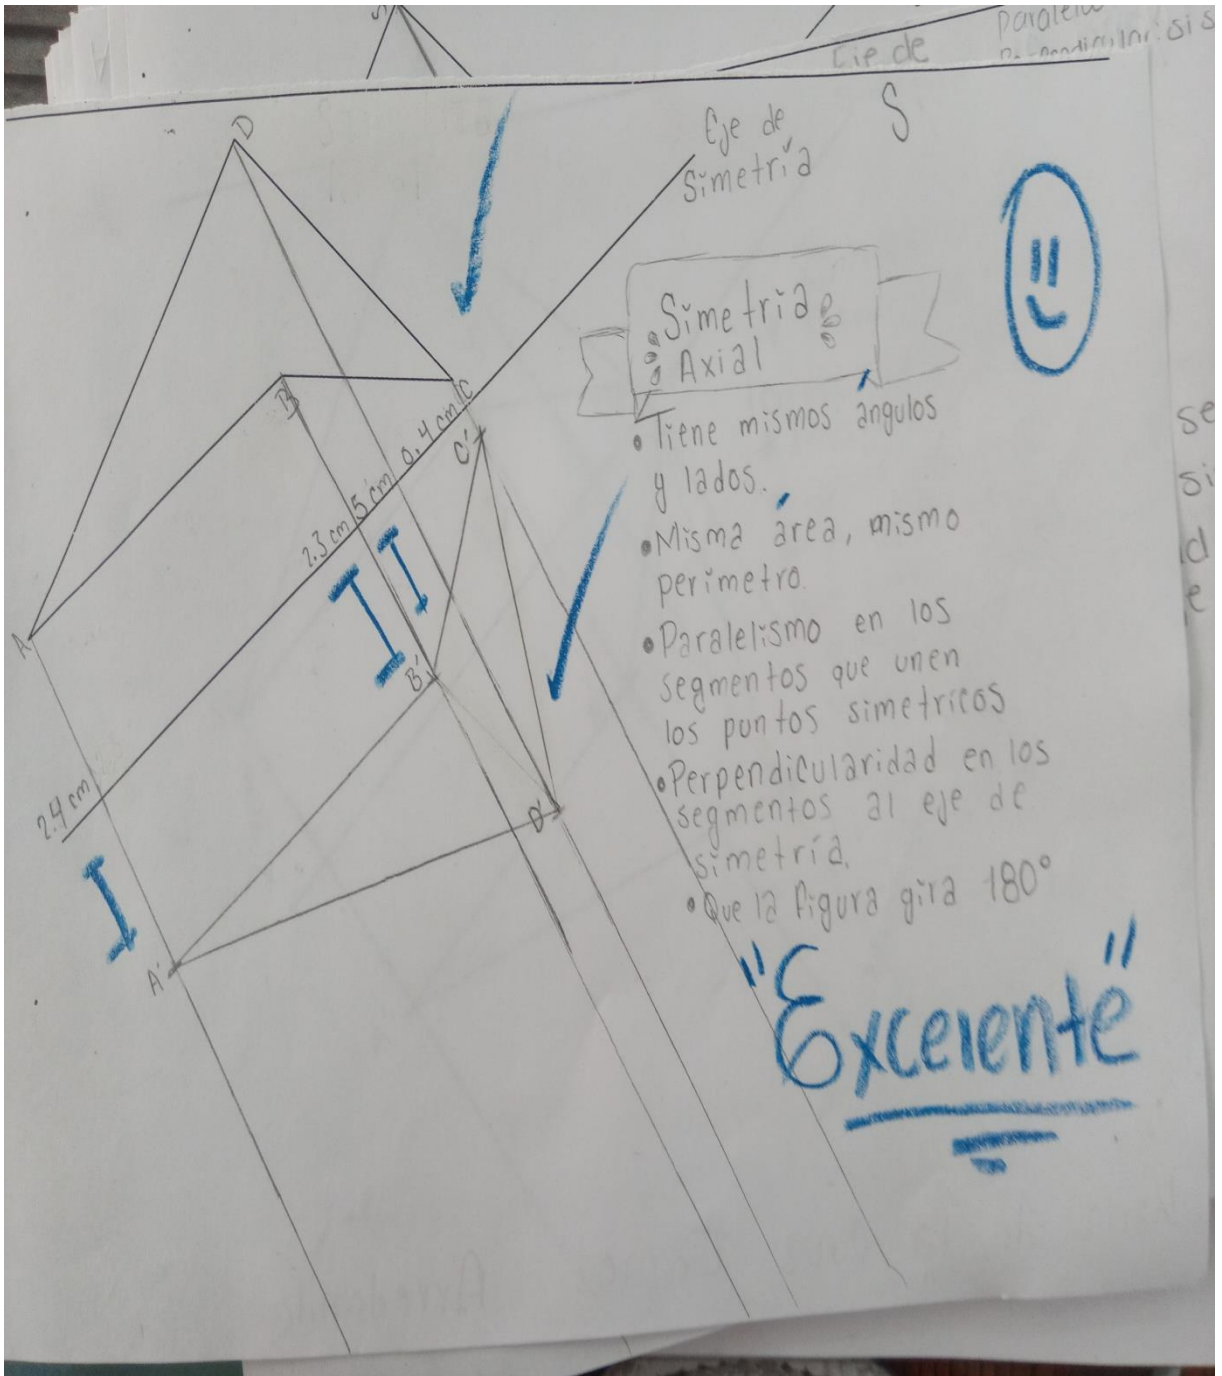 Eje de
S
Eje de
Simetría
D
Simetria
Axial
• Tiene mismos ángulos
y lados.
• Misma área, mismo
perimetro.
• Paralelismo en los
segmentos que unen
los puntos simetricos
• Perpendicularidad en los
segmentos al eje de
simetría.
• Que la figura gira 180°
"Excelente"
B
C
0.4 cm
C'
5 cm
2.3 cm
A
B'
2.4 cm
D'
A'
se